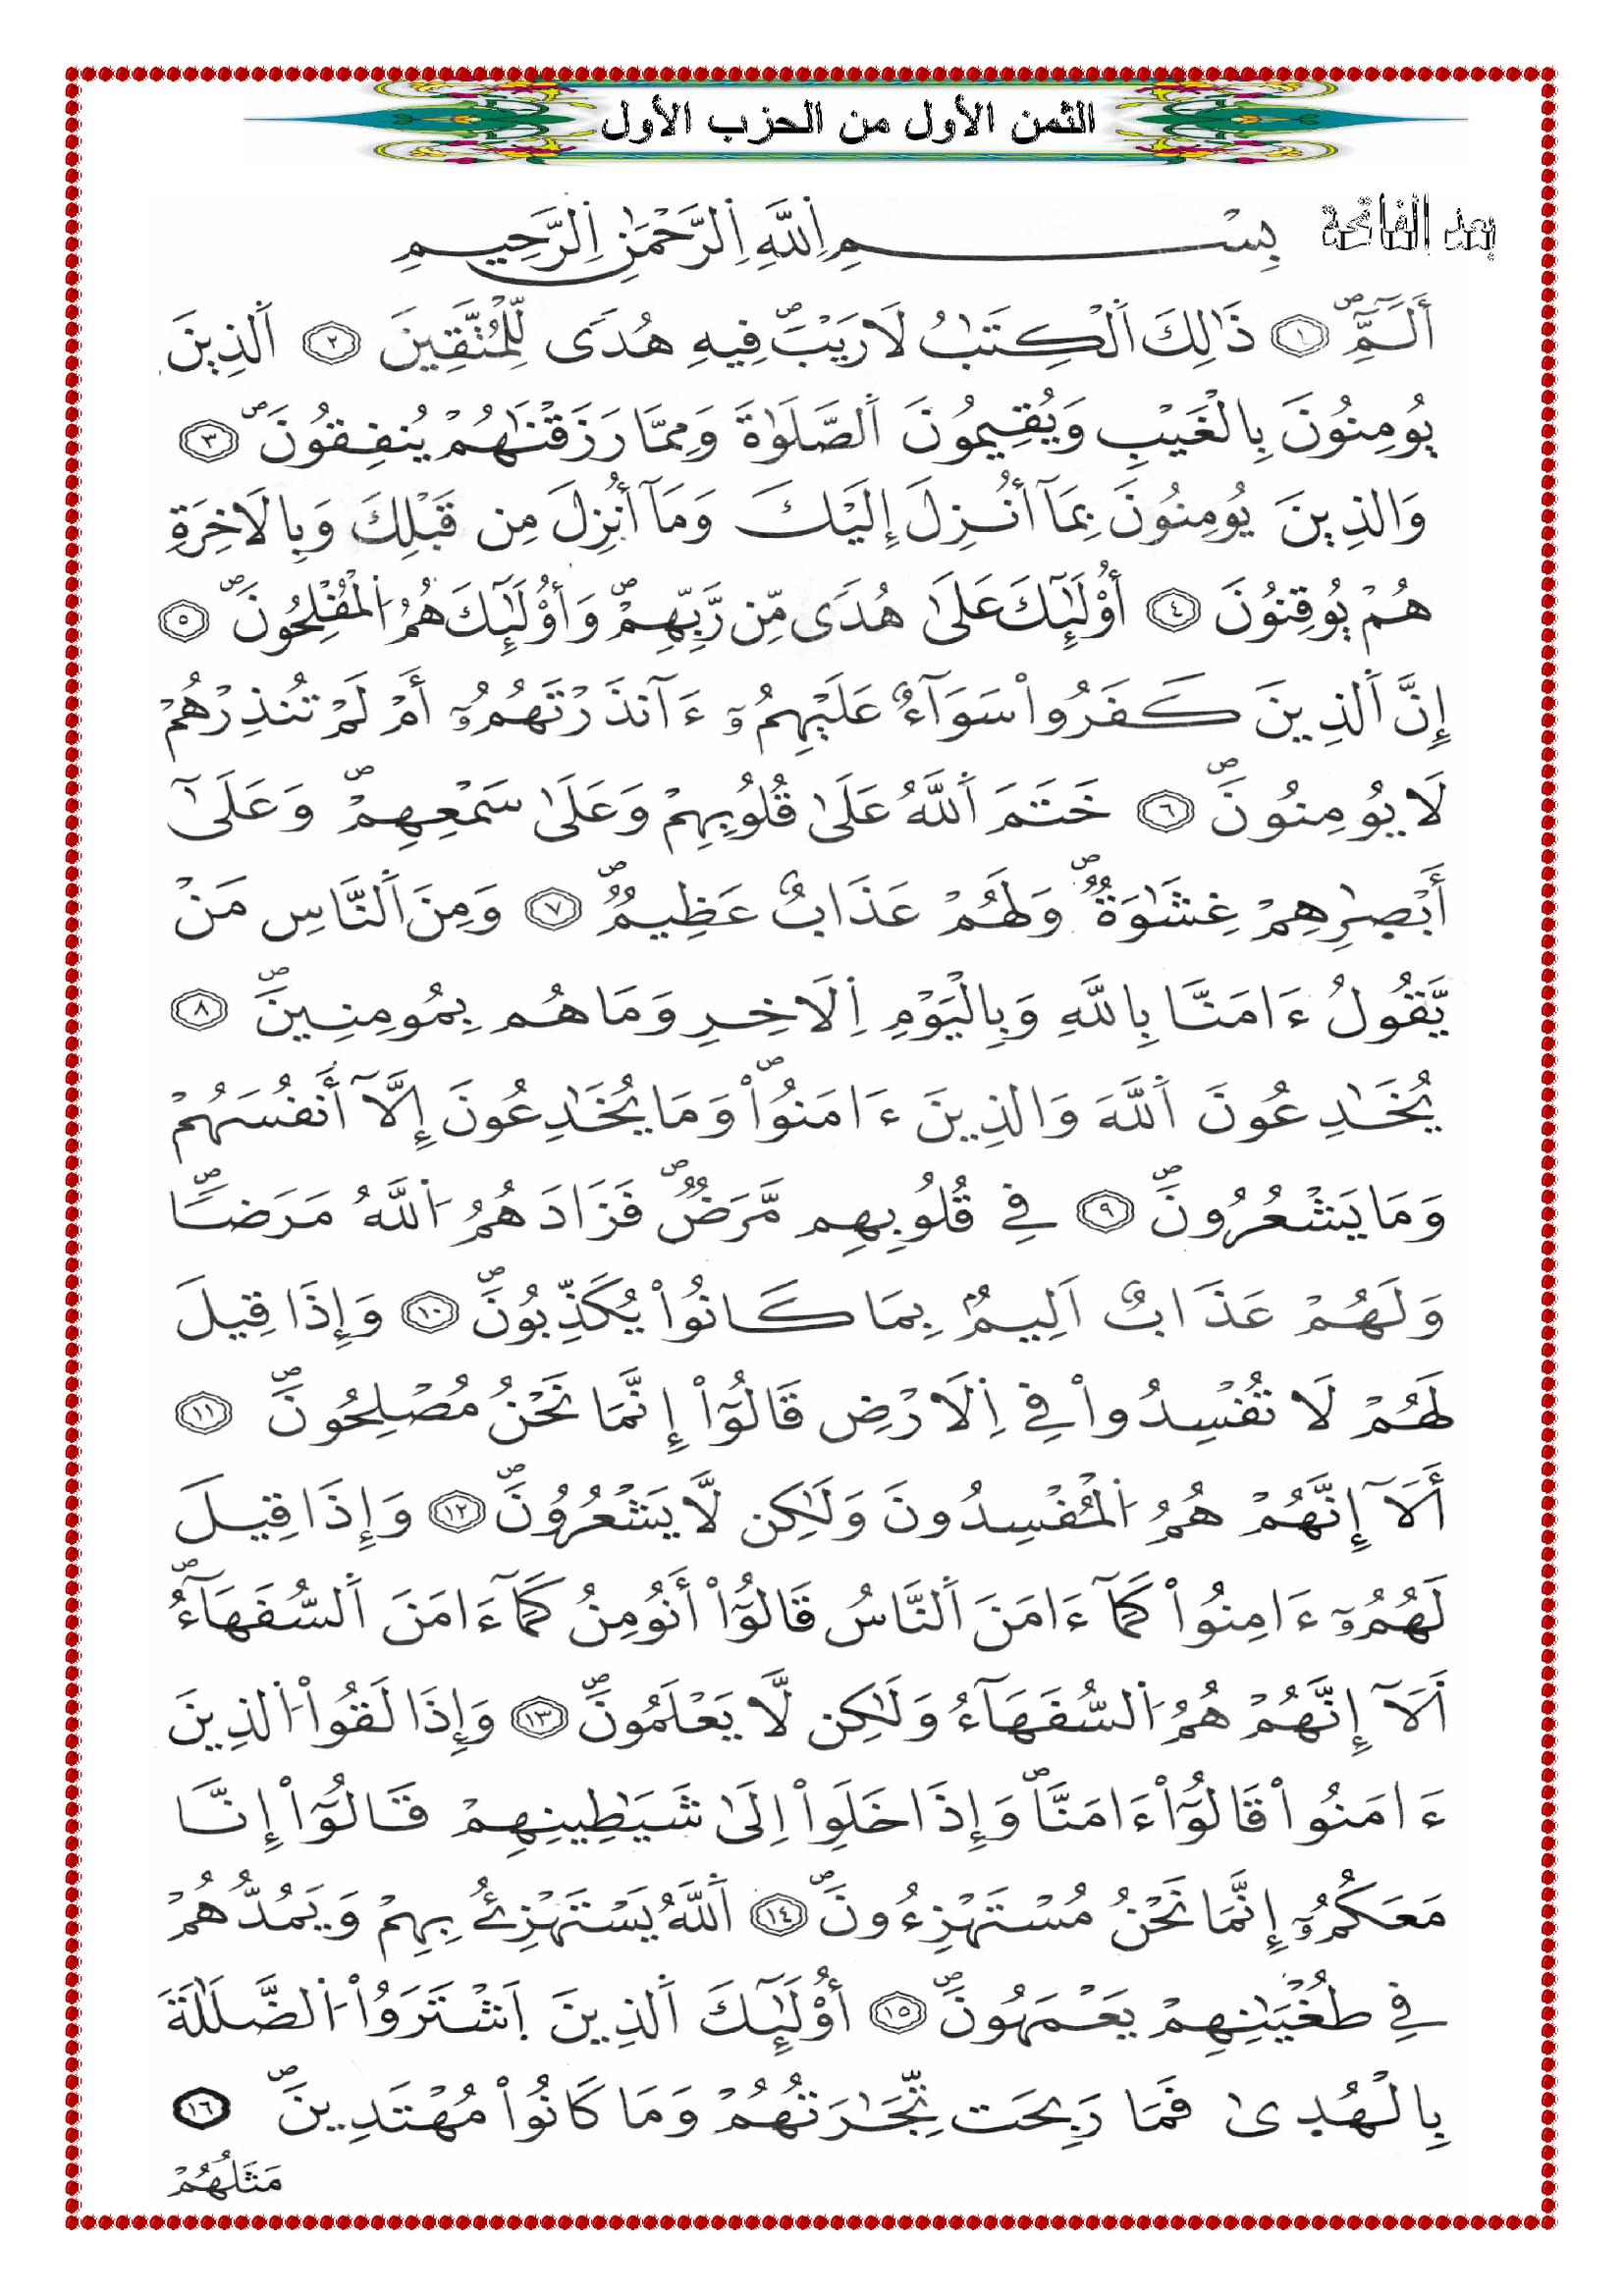 الثمن الأول من الحزب الأول
بعد الفاتحة
بِسْمِ اِللَّهِ اِلرَّحْمَٰنِ اِلرَّحِيمِ
أَلَٓمِّٓۖ ١ ذَٰلِكَ اَلْكِتَٰبُ لَا رَيْبَۖ فِيهِ هُدًى لِّلْمُتَّقِينَ ٢ اَلذِينَ
يُومِنُونَ بِالْغَيْبِ وَيُقِيمُونَ اَلصَّلَوٰةَ وَمِمَّا رَزَقْنَٰهُمْ يُنفِقُونَۖ ٣
وَالذِينَ يُومِنُونَ بِمَآ أُنزِلَ إِلَيْكَ وَمَآ أُنزِلَ مِن قَبْلِكَ وَبِالَاخِرَةِ
هُمْ يُوقِنُونَ ٤ أُوْلَٰٓئِكَ عَلَىٰ هُدًى مِّن رَّبِّهِمْۖ وَأُوْلَٰٓئِكَ هُمُ اُلْمُفْلِحُونَۖ ٥
إِنَّ اَلذِينَ كَفَرُواْ سَوَآءٌ عَلَيْهِمُۥٓ ءَآنذَرْتَهُمُۥٓ أَمْ لَمْ تُنذِرْهُمْ
لَا يُومِنُونَۖ ٦ خَتَمَ اَللَّهُ عَلَىٰ قُلُوبِهِمْ وَعَلَىٰ سَمْعِهِمْۖ وَعَلَىٰٓ
أَبْصَٰرِهِمْ غِشَٰوَةٌۖ وَلَهُمْ عَذَابٌ عَظِيمٌۖ ٧ وَمِنَ اَلنَّاسِ مَنْ
يَّقُولُ ءَامَنَّا بِاللَّهِ وَبِالْيَوْمِ اِلَاخِرِ وَمَا هُم بِمُومِنِينَۖ ٨
يُخَٰدِعُونَ اَللَّهَ وَالذِينَ ءَامَنُواْۖ وَمَا يُخَٰدِعُونَ إِلَّآ أَنفُسَهُمْ
وَمَا يَشْعُرُونَۖ ٩ فِي قُلُوبِهِم مَّرَضٌۖ فَزَادَهُمُ اُللَّهُ مَرَضاًۖ
وَلَهُمْ عَذَابٌ اَلِيمٌ بِمَا كَانُواْ يُكَذِّبُونَۖ ١٠ وَإِذَا قِيلَ
لَهُمْ لَا تُفْسِدُواْ فِي اِلَارْضِ قَالُوٓاْ إِنَّمَا نَحْنُ مُصْلِحُونَۖ ١١
أَلَآ إِنَّهُمْ هُمُ اُلْمُفْسِدُونَ وَلَٰكِن لَّا يَشْعُرُونَۖ ١٢ وَإِذَا قِيلَ
لَهُمُۥٓ ءَامِنُواْ كَمَآ ءَامَنَ اَلنَّاسُ قَالُوٓاْ أَنُومِنُ كَمَآ ءَامَنَ اَلسُّفَهَآءُۖ
أَلَآ إِنَّهُمْ هُمُ اُلسُّفَهَآءُ وَلَٰكِن لَّا يَعْلَمُونَۖ ١٣ وَإِذَا لَقُواْ اُلذِينَ
ءَامَنُواْ قَالُوٓاْ ءَامَنَّاۖ وَإِذَا خَلَوِاْ اِلَىٰ شَيَٰطِينِهِمْ قَالُوٓاْ إِنَّا
مَعَكُمُۥٓ إِنَّمَا نَحْنُ مُسْتَهْزِءُونَۖ ١٤ اَللَّهُ يَسْتَهْزِئُ بِهِمْ وَيَمُدُّهُمْ
فِي طُغْيَٰنِهِمْ يَعْمَهُونَۖ ١٥ أُوْلَٰٓئِكَ اَلذِينَ اَشْتَرَوُاْ اُلضَّلَٰلَةَ
بِالْهُدٜىٰ فَمَا رَبِحَت تِّجَٰرَتُهُمْ وَمَا كَانُواْ مُهْتَدِينَۖ ١٦
مَثَلُهُمْ